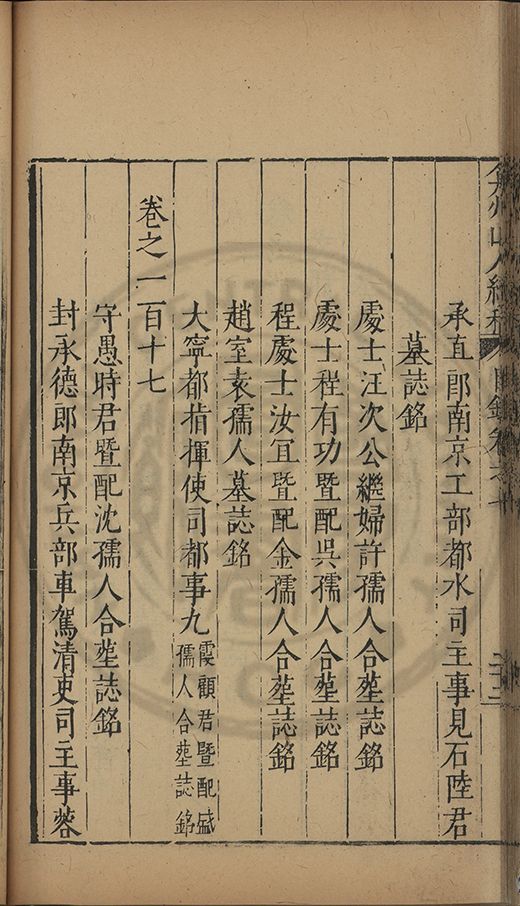 承直郎南京工部都水司主事見石陸君
墓誌銘
處士汪次公繼婦許孺人合塟誌銘
處士程有功暨配吳孺人合塟誌銘
程處士汝冝暨配金孺人合塟誌銘
趙室袁孺人墓誌銘
大寧都指揮使司都事九霞顧君暨配盛
孺人合塟誌銘
卷之一百十七
守愚時君暨配沈孺人合塟誌銘
封承德郎南京兵部車駕清吏司主事蓉